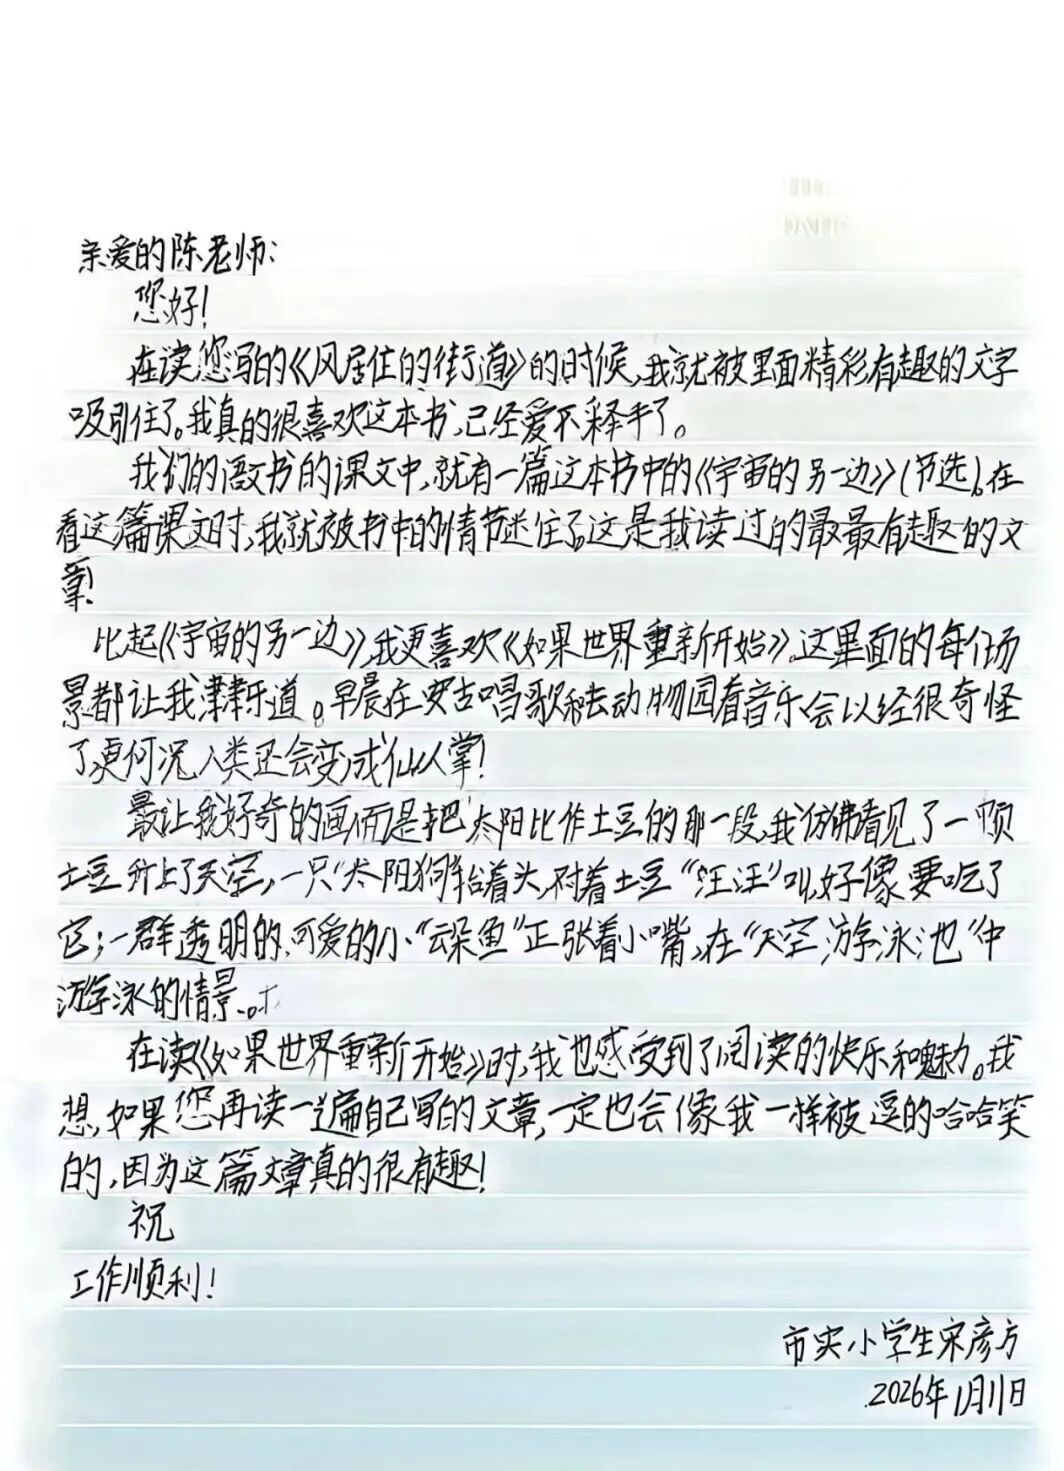 亲爱的陈老师:
您好!
在读您写的《风居住的街道》的时候,我就被里面精彩有趣的文字
吸引住了。我真的很喜欢这本书,已经爱不释手了。
我们的语文书的课文中,就有一篇这本书中的《宇宙的另一边》(节选)。在
看这篇课文时,我就被书中的情节迷住了。这是我读过的最最有趣的文
章!
比起《宇宙的另一边》,我更喜欢《如果世界重新开始》。这里面的每个场
景都让我津津乐道。早晨在安吉唱歌和去动物园看音乐会以经很奇怪
了,更何况人类还会变成仙人掌!
最让我好奇的画面是把太阳比作土豆的那一段,我仿佛看见了一颗
土豆升上了天空,一只“太阳狗”抬着头,对着土豆“汪汪”叫,好像要吃了
它;一群透明的,可爱的小“云朵鱼”正张着小嘴,在“天空游泳池”中
游泳的情景。
在读《如果世界重新开始》时,我也感受到了阅读的快乐和魅力。我
想,如果您再读一遍自己写的文章,一定也会像我一样被逗的哈哈笑
的,因为这篇文章真的很有趣!
祝
工作顺利!
市实小学生宋彦方
2026年1月11日